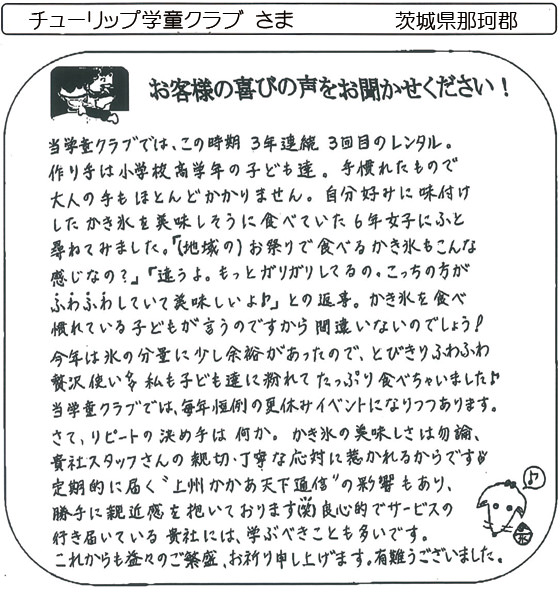 チューリップ学童クラブ さま　茨城県那珂郡
お客様の喜びの声をお聞かせください！
当学童クラブでは、この時期 3年連続 3回目のレンタル。
作り手は小学校高学年の子ども達。 手慣れたもので
大人の手もほとんどかかりません。 自分好みに味付け
したかき氷を美味しそうに食べていた6年女子にふと
尋ねてみました。「(地域の)お祭りで食べるかき氷もこんな
感じなの？」「違うよ。もっとガリガリしてるの。こっちの方が
ふわふわしていて美味しいよ♪」との返事。 かき氷を食べ
慣れている子どもが言うのですから間違いないのでしょう！
今年は氷の分量に少し余裕があったので、とびきりふわふわ
贅沢使い 私も子ども達に紛れてたっぷり食べちゃいました♪
当学童クラブでは、毎年恒例の夏休みイベントになりつつあります。
さて、リピートの決め手は何か。 かき氷の美味しさは勿論、
貴社スタッフさんの親切・丁寧な応対に惹かれるからです
定期的に届く“上州かかあ天下通信”の影響もあり、
勝手に親近感を抱いております(笑) 良心的でサービスの
行き届いている貴社には、学ぶべきことも多いです。
これからも益々のご繁盛、お祈り申し上げます。有難うございました。
♪